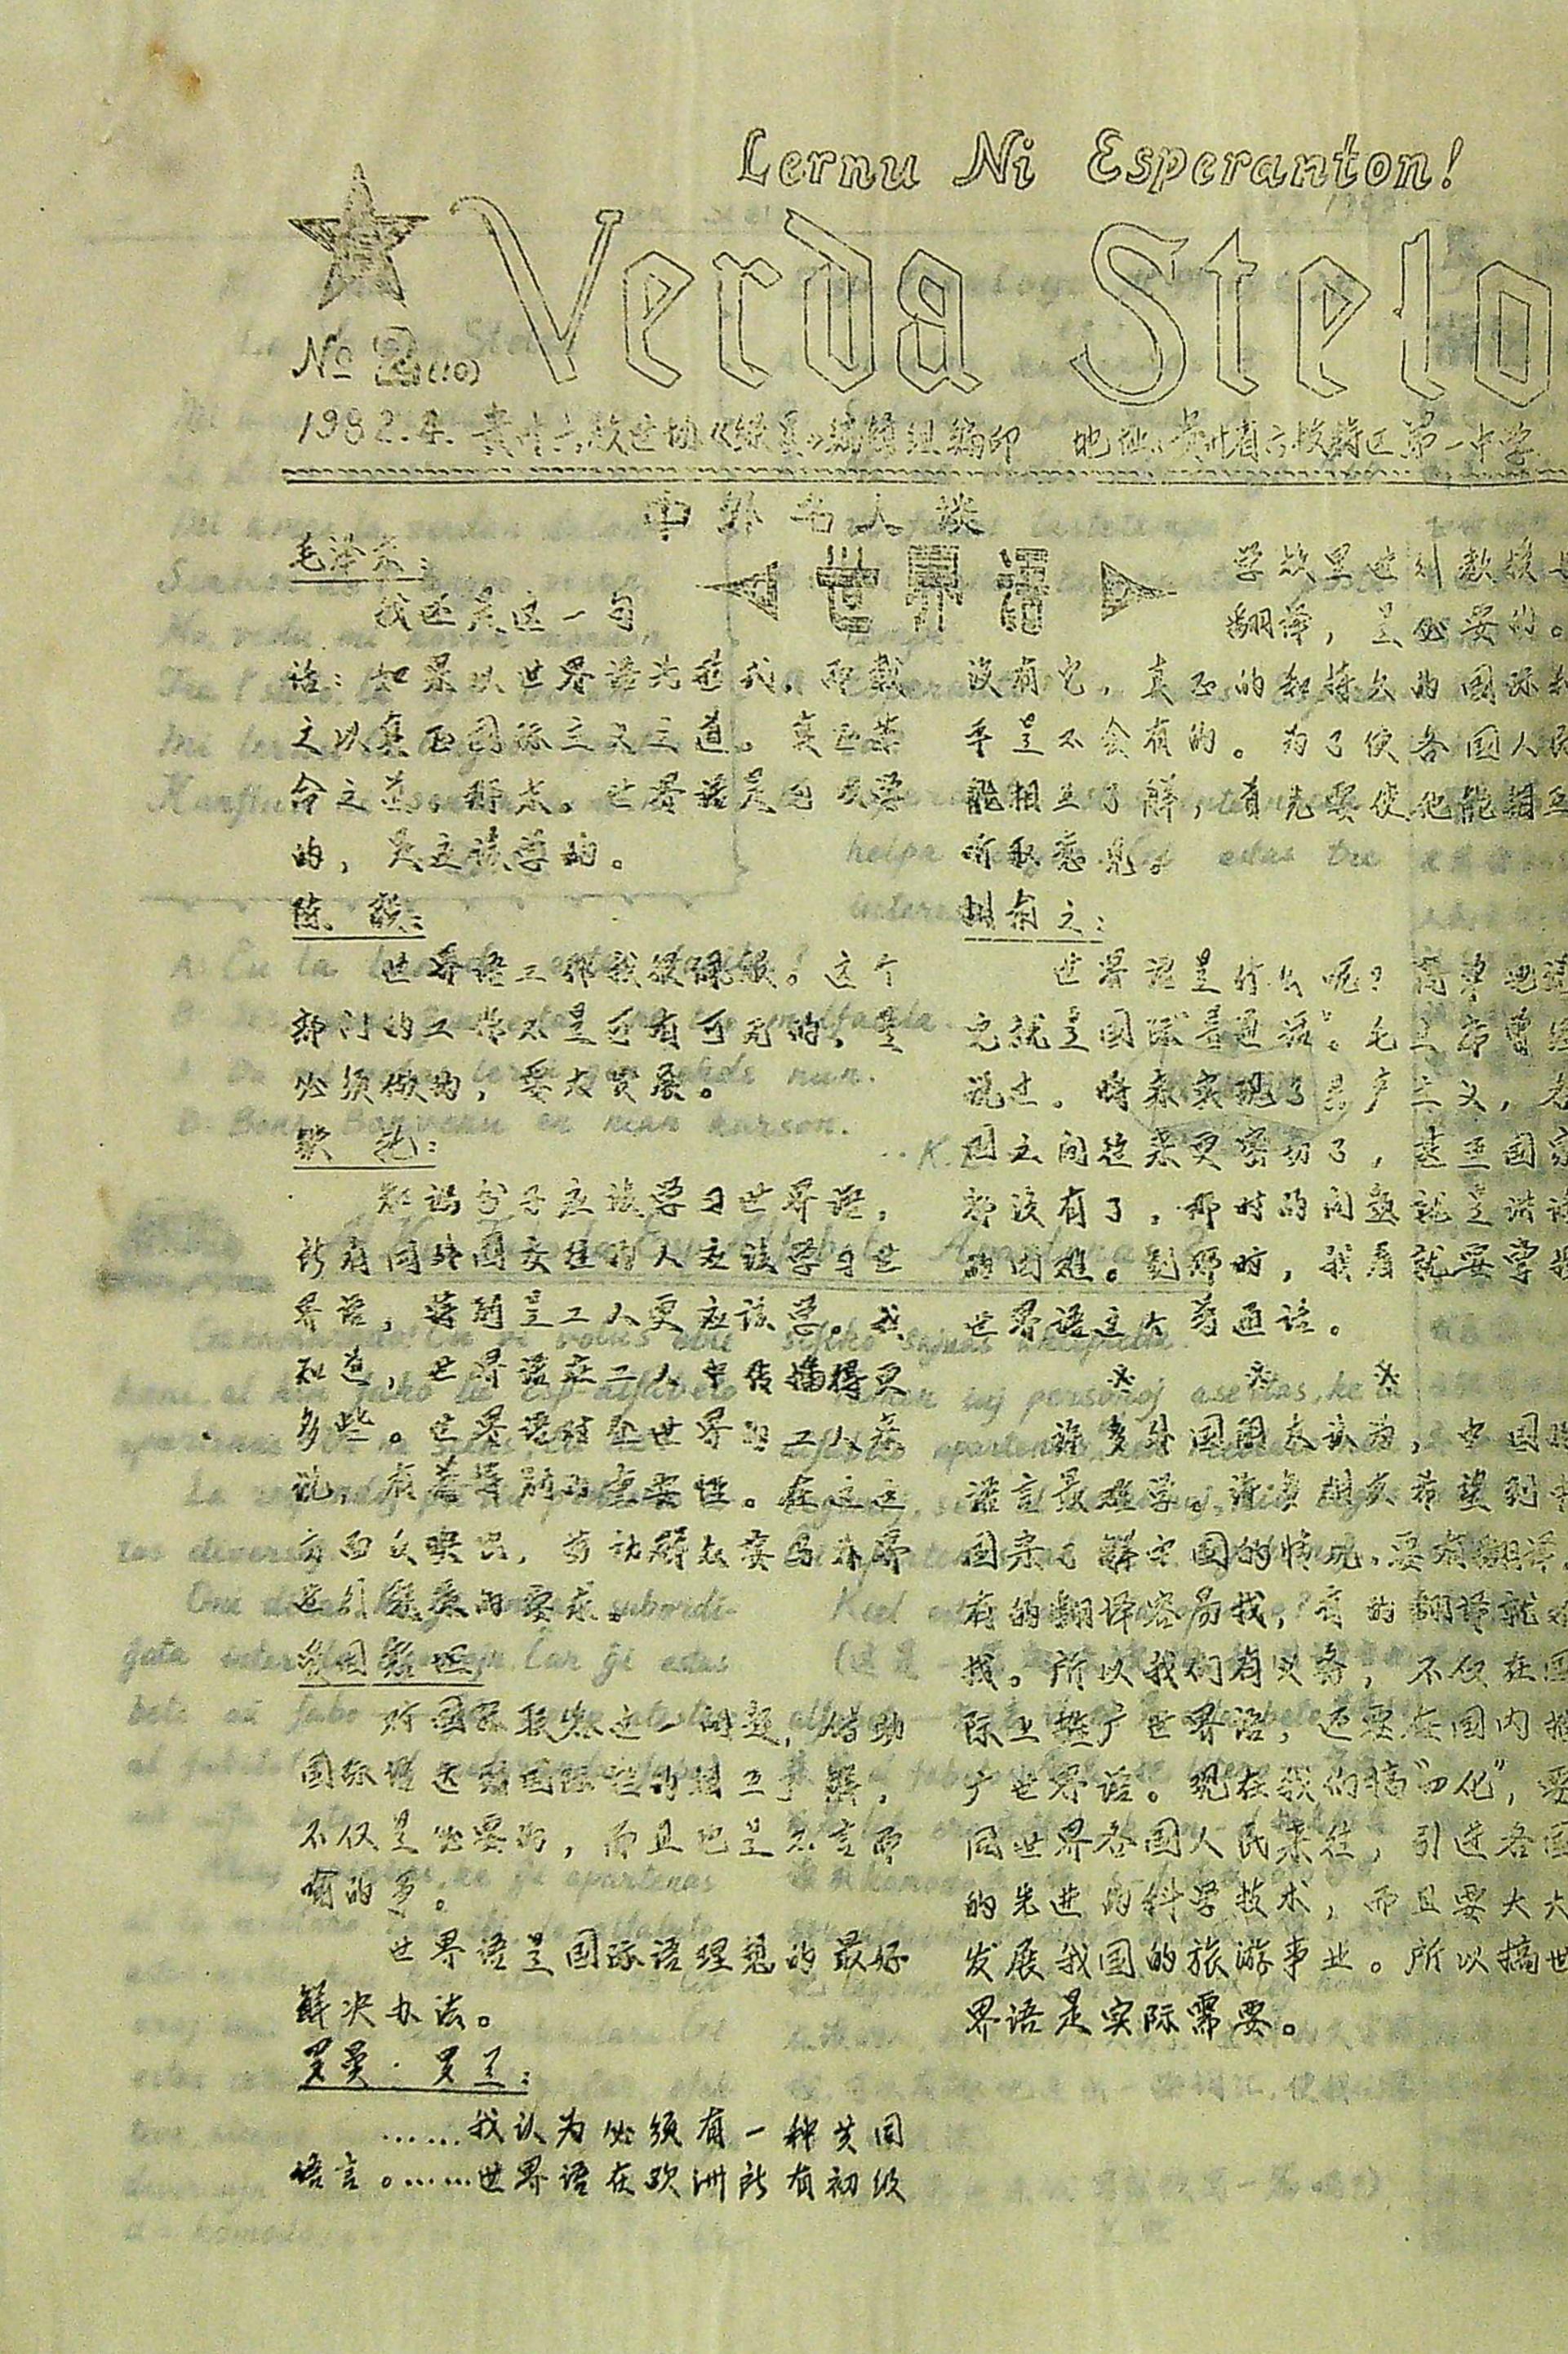 Lernu Ni Esperanton!
Verda Stelo
№ 2(10)
1982.4. 贵州六枝世协《绿星》编辑组编印 地址:贵州省六枝特区第一中学
中外名人谈
世界语
毛泽东:
我还是这一句
话:如果以世界语为形式,而载
之以真正国际主义之道,真正革
命之道,那末,世界语是可以学
的,是应该学的。
陈毅:
世界语工作我很佩服。这个
部门的工作不是可有可无的,是
必须做的,要大发展。
知识分子应该学习世界语,
所有同外国交往的人应该学习世
界语,特别是工人更应该学。我
知道,世界语在工人中传播得更
多些。世界语对全世界的工人来
说,有着特别的重要性。在这
方面
对国际联系这一问题,借助
国际语达到国际性的相互了解,
不仅是必要的,而且也是不言而
喻的事。
世界语是国际语理想的最好
解决办法。
罗曼·罗兰:
……我认为必须有一种共同
语言。……世界语在欧洲所有初级
学校里达到教授与
翻译,是必要的。
没有它,真正的和持久的国际和
平是不会有的。为了使各国人民
能相互了解,首先要使他能相互
听取意见。
胡愈之:
世界语是什么呢?简单地说
它就是国际“普通话”。毛主席曾经
说过,将来实现了共产主义,各
国之间往来更密切了,甚至国家
都没有了,那时的问题就是说话
的困难。到那时,我看就要掌握
世界语这个普通话。
* * *
许多外国朋友认为,中国的
语言最难学。许多朋友希望到中
国来了解中国的情况,要有翻译,
有的翻译容易找,有的翻译就难
找。所以我们有义务,不仅在国
际上推广世界语,还要在国内推
广世界语。现在我们搞“四化”,要
同世界各国人民来往,引进各国
的先进的科学技术,而且要大大
发展我国的旅游事业。所以搞世
界语是实际需要。